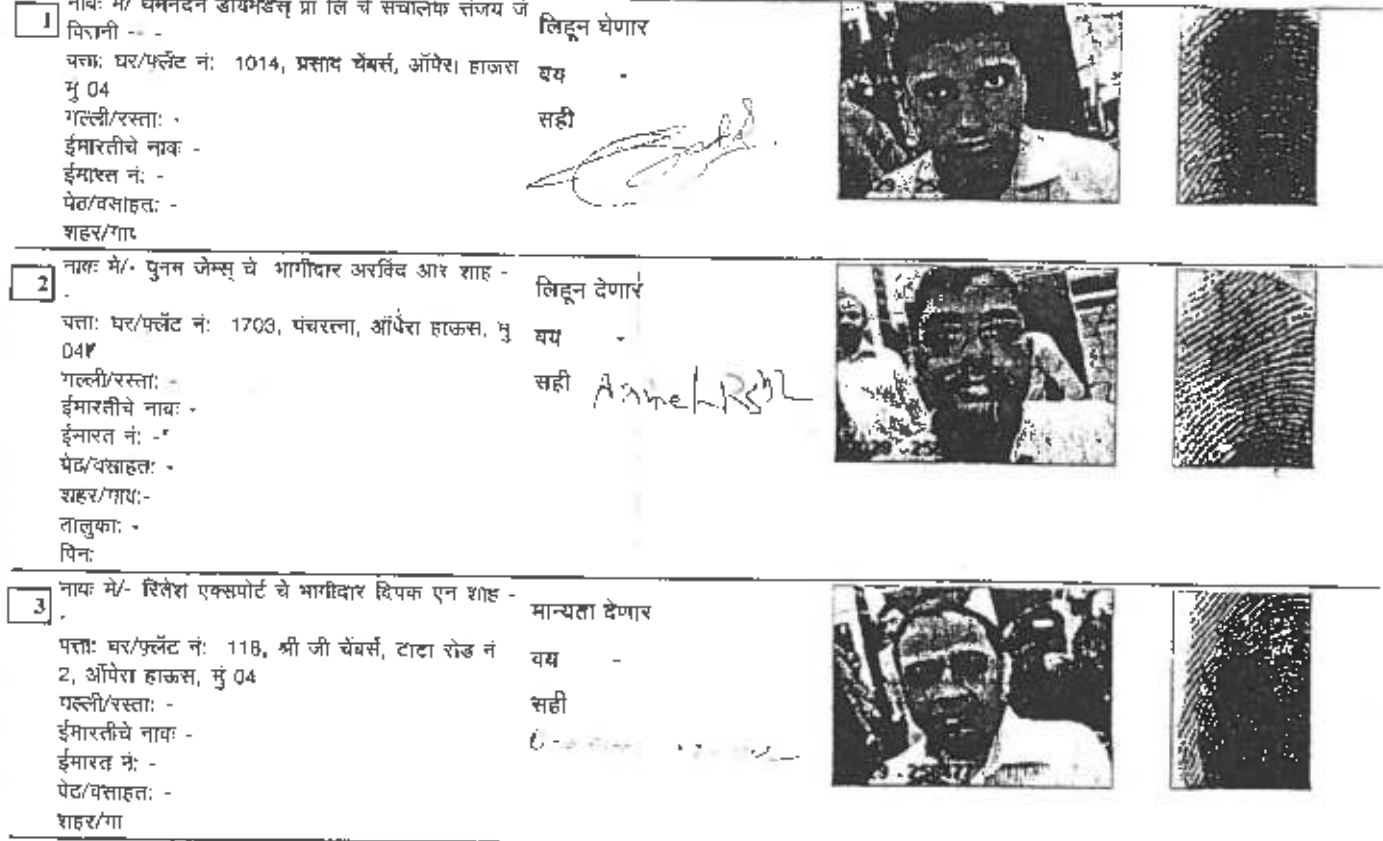 1
नावः मे/ धर्मनंदन डायमंडस् प्रा लि चे संचालक संजय जे
पिरानी -- -
पत्ताः घर/फ्लॅट नंः 1014, प्रसाद चेंबर्स, ऑपेरा हाऊस
मु 04
गल्ली/रस्ताः -
ईमारतीचे नावः -
ईमारत नंः -
पेठ/वसाहतः -
शहर/गाव
लिहून घेणार
वय -
सही
2
नावः मे/- पुनम जेम्स् चे भागीदार अरविंद आर शाह -
-
पत्ताः घर/फ्लॅट नंः 1703, पंचरत्ना, ऑपेरा हाऊस, मु
04
गल्ली/रस्ताः -
ईमारतीचे नावः -
ईमारत नंः -
पेठ/वसाहतः -
शहर/गावः-
तालुकाः -
पिनः
लिहून देणार
वय -
सही
3
नावः मे/- रितेश एक्सपोर्ट चे भागीदार दिपक एन शाह -
-
पत्ताः घर/फ्लॅट नंः 118, श्री जी चेंबर्स, टाटा रोड नं
2, ऑपेरा हाऊस, मुं 04
गल्ली/रस्ताः -
ईमारतीचे नावः -
ईमारत नंः -
पेठ/वसाहतः -
शहर/गा
मान्यता देणार
वय -
सही